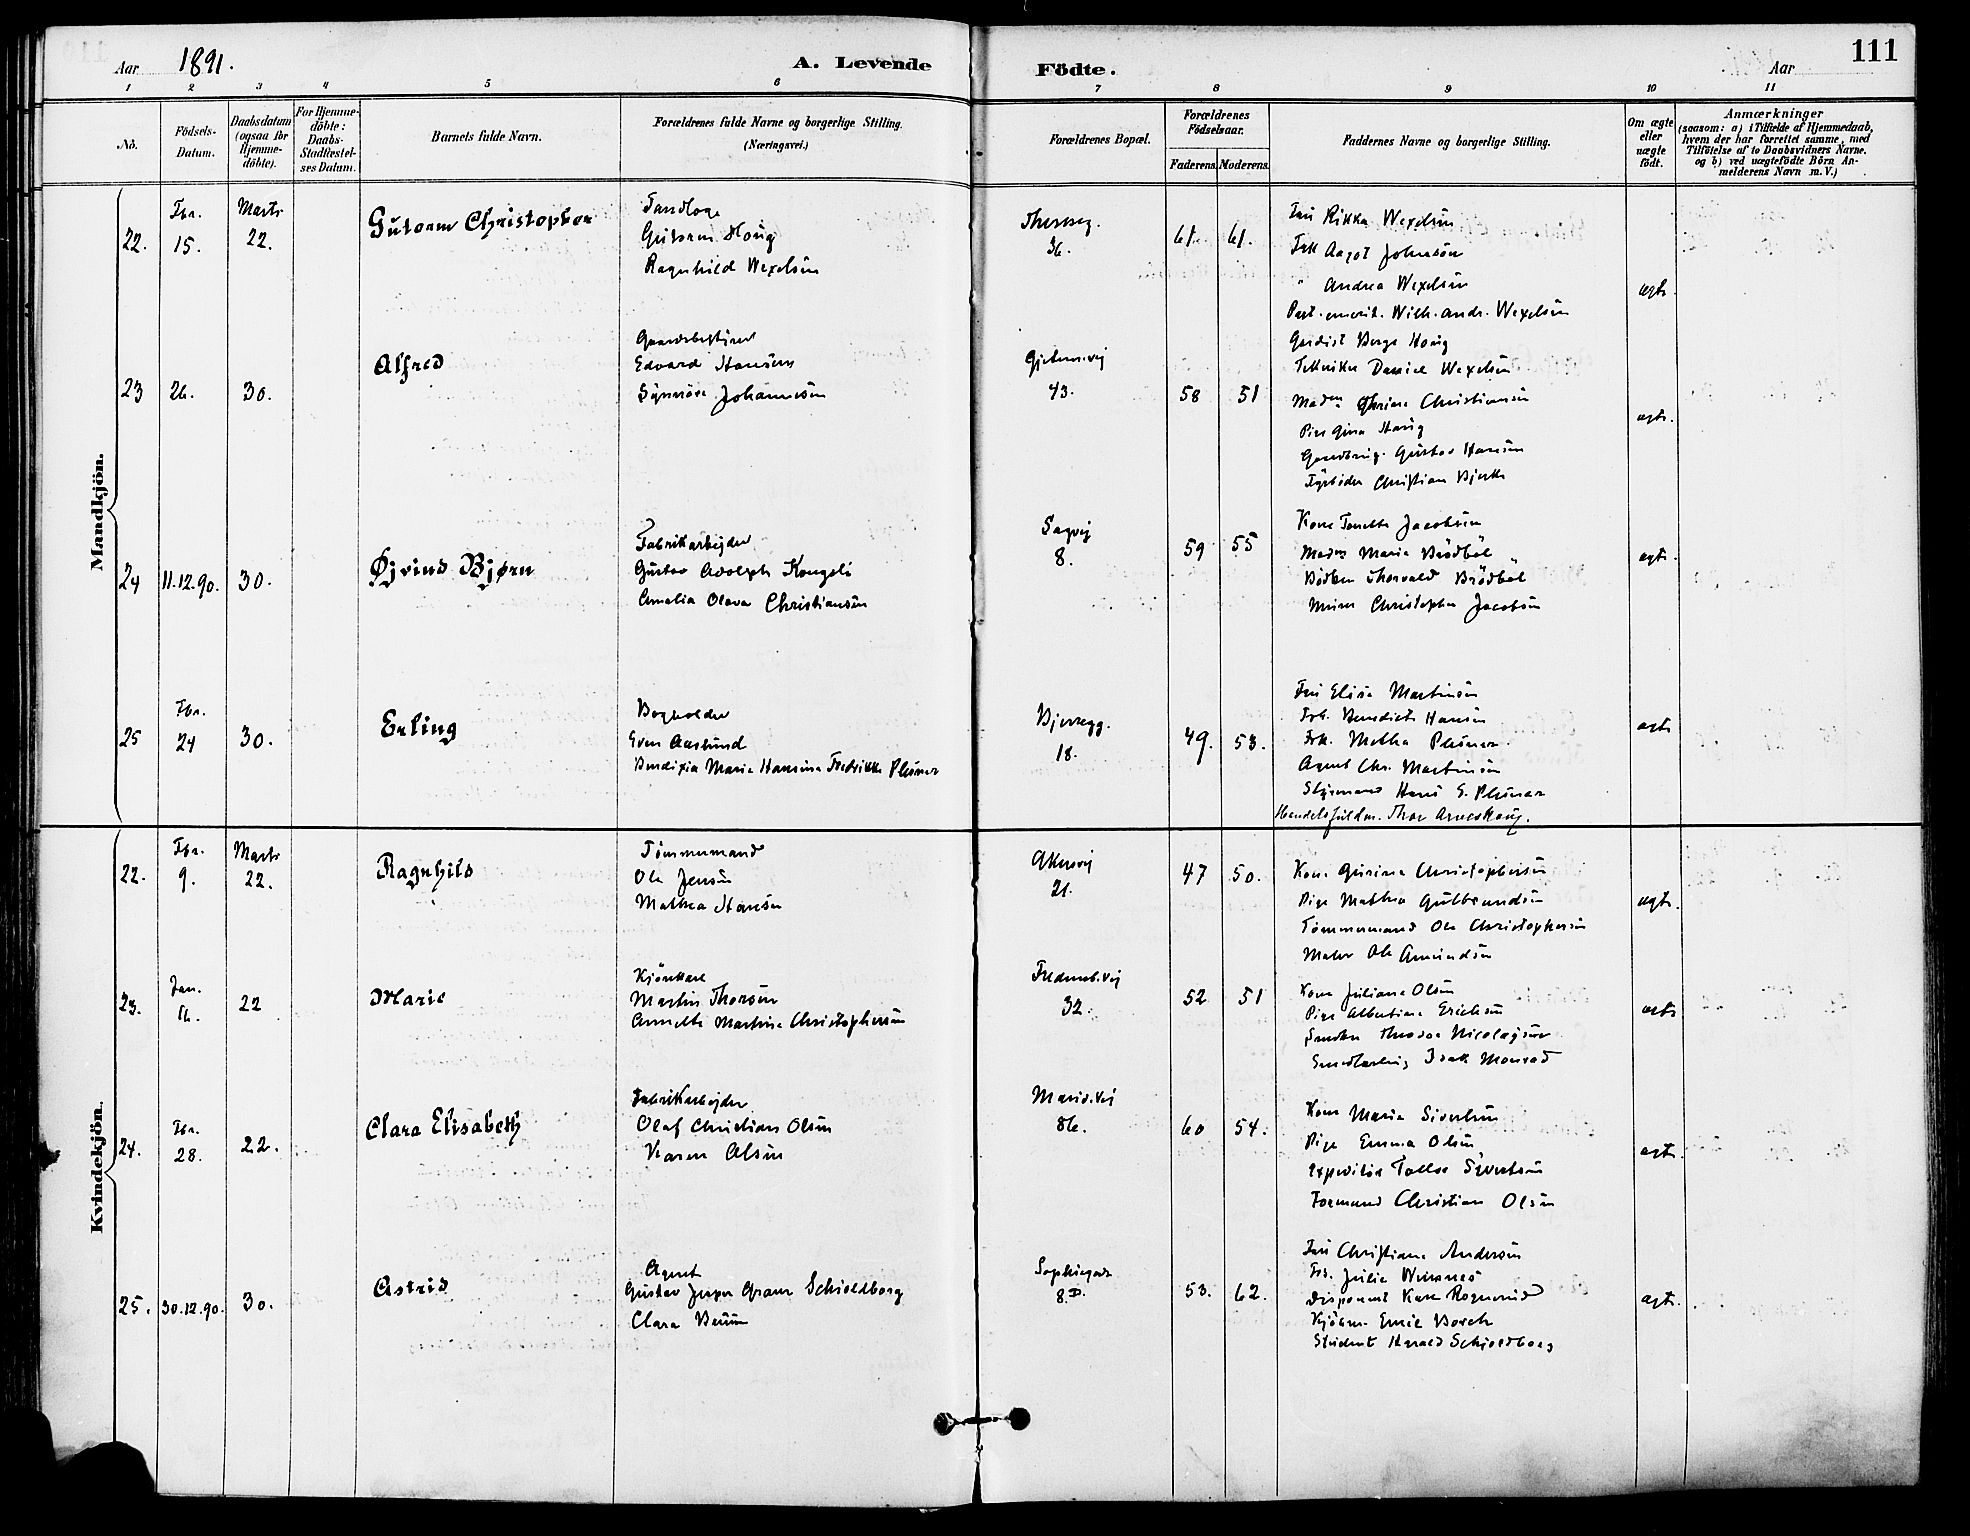 111
Aar 1891.
A. Levende
Födte.
Aar
1 2 3 4 5 6 7 8 9 10 11
No.
Födsels-Datum.
Daabsdatum (ogsaa for Hjemme-döbte).
For Hjemme-döbte: Daabs-Stadfæstel-ses Datum.
Barnets fulde Navn.
Forældrenes fulde Navne og borgerlige Stilling.
(Næringsvei.)
Forældrenes Bopæl.
Forældrenes Födselsaar.
Faderens. Moderens.
Faddernes Navne og borgerlige Stilling.
Om ægte eller uægte födt.
Anmærkninger
(saasom: a) i Tilfælde af Hjemmedaab, hvem der har forrettet samme, med Tilföielse af to Daabsvidners Navne, og b) ved uægtefödte Börn An-melderens Navn m. V.)
Mandkjön.
22.
Fbr.
15.
Marts
22.
Gutorm Christopher
Tandlæge
Gutorm Houg
Ragnhild Wexelsen
Theresesg.
36.
61. 61.
Fru Rikka Wexelsen
Frk Aagot Johnsön
" Andrea Wexelsen
Past. emerit. Wilh. Andr. Wexelsen
Tekniker Daniel Wexelsen
ægte
23
26.
30.
Alfred
Gaardsbestyrer
Edvard Hansen
Synnöve Johannesen
43.
58 51
Pige Gina Haug
Gustav Hansen
Fyrböder Christian Bjerke
ægte.
24
11.12.90.
30.
Øjvind Bjørn
Fabrikarbejder
Gustav Adolph Kongeli
Amalia Olava Christiansen
Sagvej
8.
59 55
Kone Jacobsen
Maria Brödböl
Bödker Thorvald Brödböl
Murer Christopher Jacobsen
ægte.
25
Fbr.
24
30.
Erling
Bogholder
Even Aaslund
Bendixia Marie Hansine Fredrikke Plesner
Bjerregg.
18.
49. 53.
Fru Elise Martinsen
Frk. Benedicte Hansen
Frk. Methea Plesner
Agent Chr. Martinsen
Styrmand Hans E. Plesner
Handelsfuldm. Thor Arneskaug.
ægte
Kvindekjön.
22.
Fbr.
9.
Marts
22.
Ragnhild
Tömmermand
Ole Jensen
Mathea Hansen
Akersvej
21.
47 50.
Kone Gurine Christophersen
Pige Mathea Gulbrandsen
Tömmermand Ole Christophersen
Maler Ole Amundsen
ægte.
23.
Jan.
16.
22
Marie
Kjörekarl
Martin Thorsen
Annette Martine Christophersen
32.
52 51
Kone Juliane Olsen
Pige Albertine Ericksen
Snedker Theodor Nicolaysen
Isak Monrad
ægte
24.
Fbr.
28.
22.
Clara Elisabeth
Fabrikarbejder
Olaf Christian Olsen
Karen Olsen
Marid.vej
86.
60 54.
Kone Maria Sivertsen
Pige Emma Olsen
Expeditör Tollef Syvertsen
Formand Christian Olsen
ægte.
25.
30.12.90.
30.
Astrid
Agent
Gustav Jesper Gram Schioldborg
Clara Bruun
Sophiegade
8.D.
53. 62.
Fru Christiane Andersen
Disponent Karl Rognerud
Kjöbm. Emil Borch
Student Harald Schioldborg
ægte.